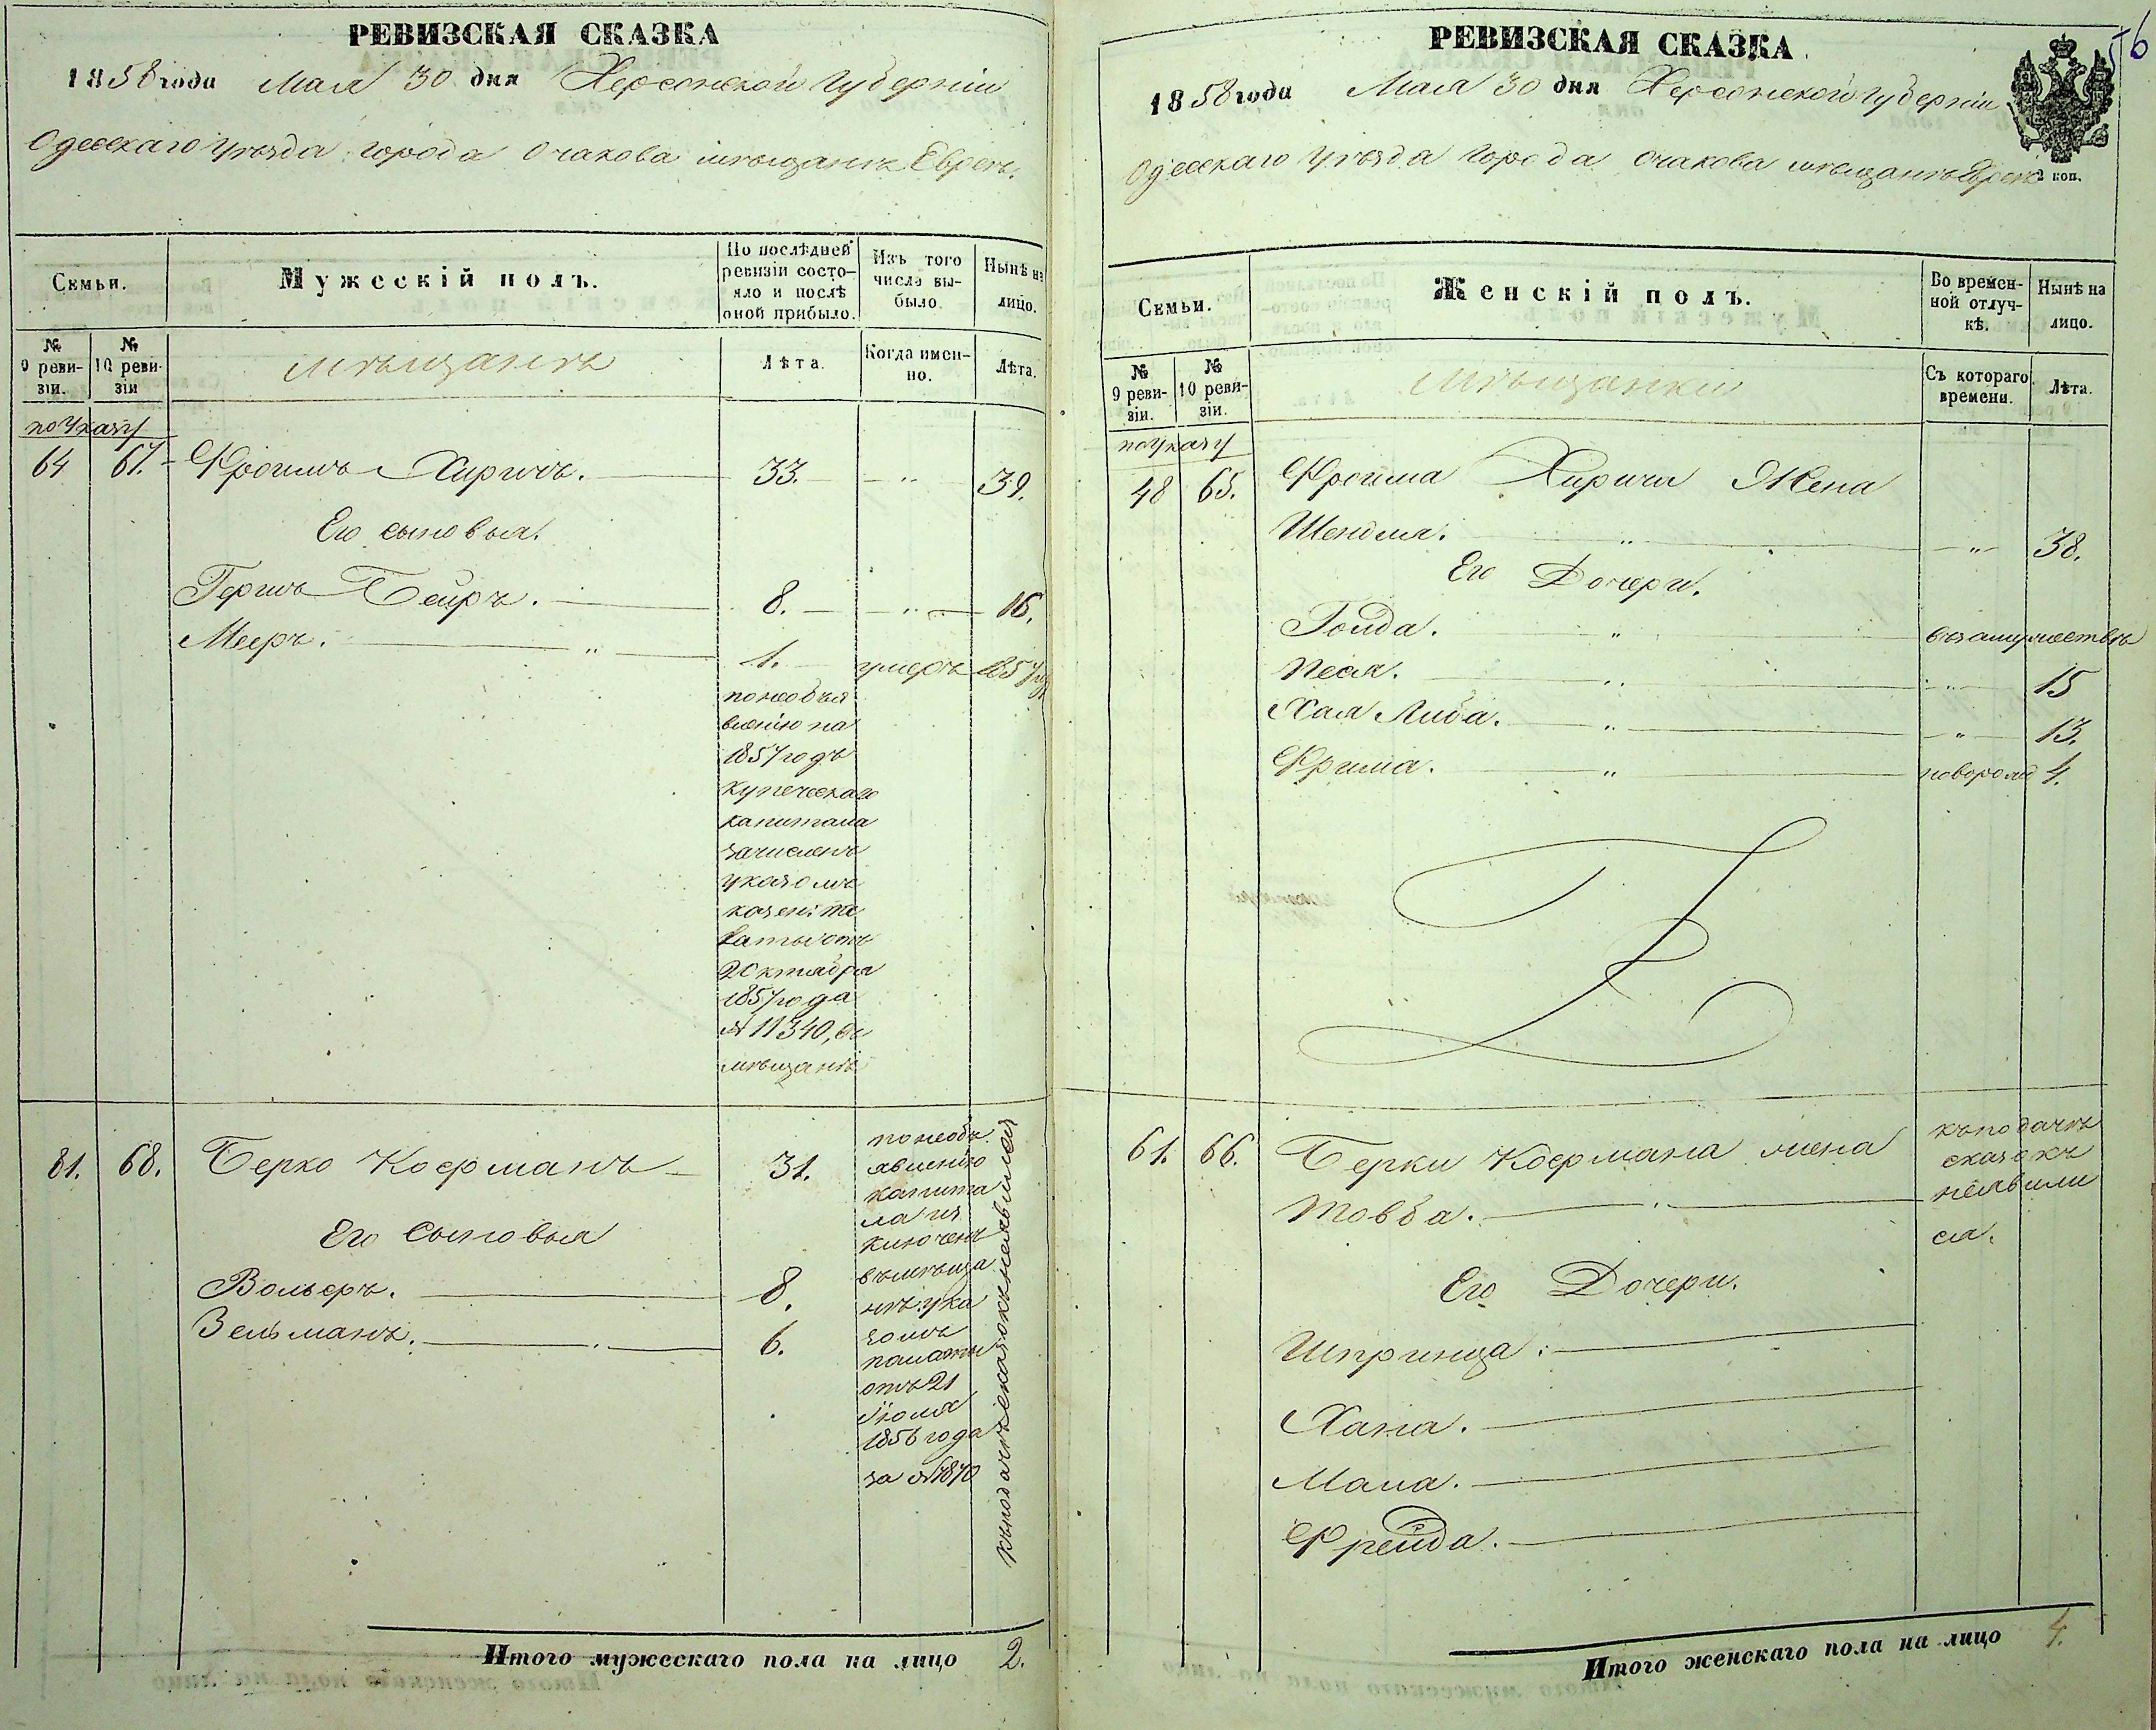 РЕВИЗСКАЯ СКАЗКА
1858 года Мая 30 дня Херсонской Губерніи
Одесскаго уѣзда города Очакова мѣщанъ Евреевъ.
Семьи.
Мужескій полъ.
По послѣдней ревизіи состояло и послѣ оной прибыло.
Изъ того числа выбыло.
Нынѣ на лицо.
№ 9 ревизіи.
№ 10 ревизіи
мѣщанъ
Лѣта.
Когда именно.
Лѣта.
по Указу
64 67. Фроимъ Хиричъ. 33. „ 39.
Его сыновья.
Гершъ Беиръ. 8. „ 16.
Мееръ. „ 1. умеръ 1857
по необъя
вленію на
1857 годъ
купеческаго
капитала
зачисленъ
указомъ
казен:
палаты отъ
2 Октября
1857 года
№ 11340, въ
мѣщане
81. 68. Берко Коерманъ 31.
по необъ
явленію
капита
ла ис
ключенъ
въ мѣща
не ука
зомъ
палаты
отъ 21
Іюля
1856 года
за №
къ подачѣ сказокъ неявился
Его Сыновья
Вольеръ. 8.
Зельманъ. 6.
Итого мужескаго пола на лицо 2.
РЕВИЗСКАЯ СКАЗКА
56
1858 года Мая 30 дня Херсонской Губерніи
Одесскаго уѣзда города Очакова мѣщанъ Евреевъ
коп.
Семьи.
Женскій полъ.
Во временной отлучкѣ.
Нынѣ на лицо.
№ 9 ревизіи.
№ 10 ревизіи.
мѣщанки
Съ котораго времени.
Лѣта.
по Указу
48 65. Фроима Хирича Жена
Шендля. „ „ 38.
Его Дочери.
Гольда. „ въ замужествѣ
Песя. „ „ 15
Хая Либа. „ „ 13.
Фрима. „ новорож 4.
61. 66. Берки Коермана жена
Товба.
къ подачѣ
сказокъ
неявили
ся.
Его Дочери.
Шпринца.
Хана.
Мала.
Фрейда.
Итого женскаго пола на лицо 4.